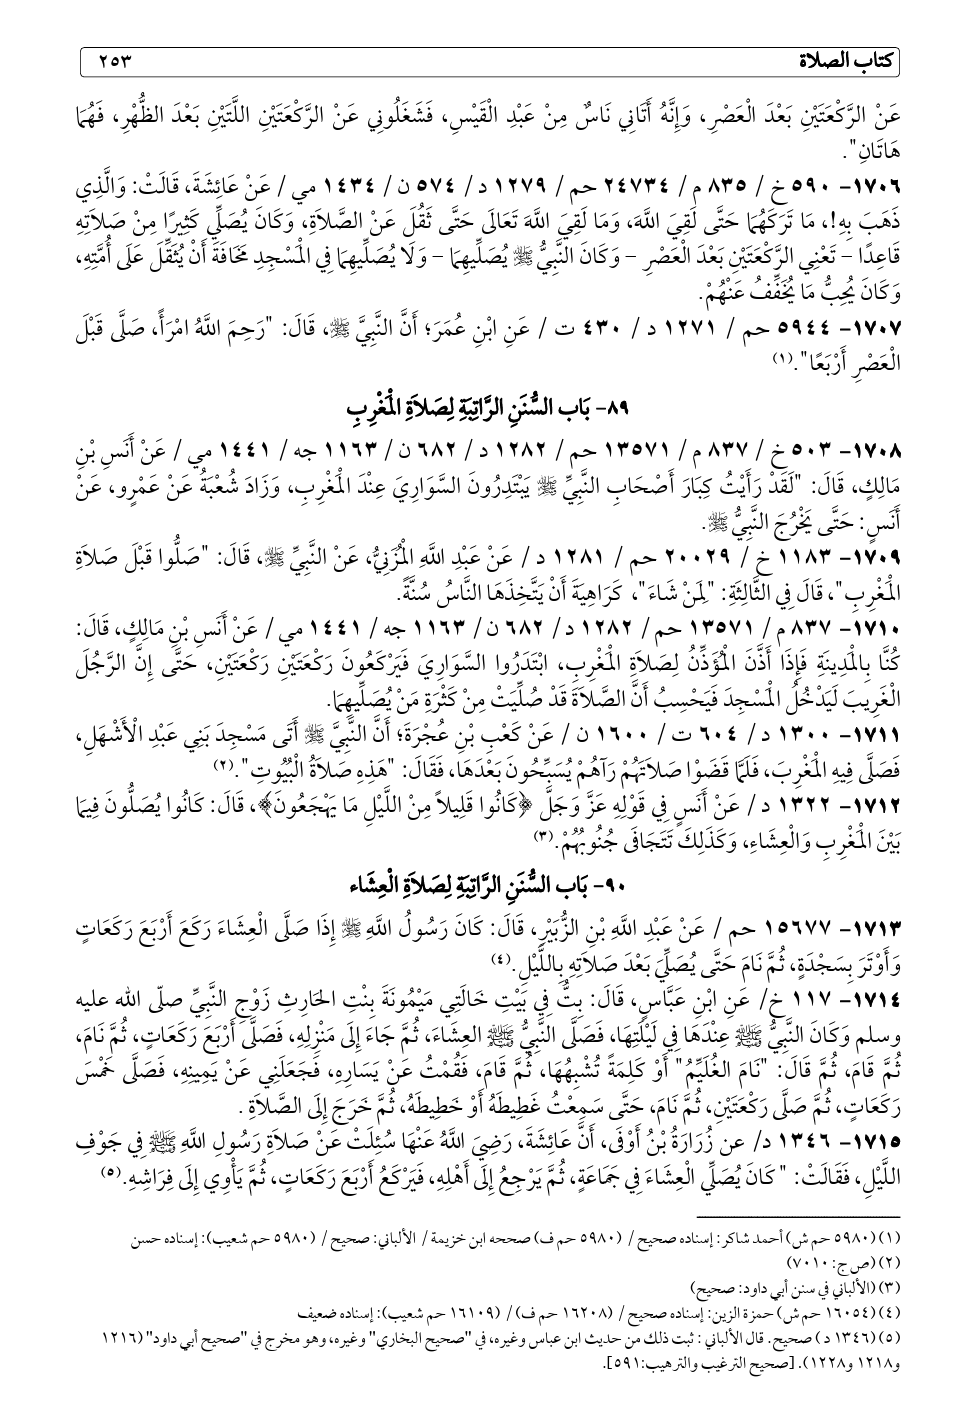 كتاب الصلاة ٢٥٣
عَنْ الرَّكْعَتَيْنِ بَعْدَ الْعَصْرِ، وَإِنَّهُ أَتَانِي نَاسٌ مِنْ عَبْدِ الْقَيْسِ، فَشَغَلُونِي عَنْ الرَّكْعَتَيْنِ اللَّتَيْنِ بَعْدَ الظُّهْرِ، فَهُمَا
هَاتَانِ".
١٧٠٦- ٥٩٠ خ / ٨٣٥ م/ ٢٤٧٣٤ حم / ١٢٧٩ د/ ٥٧٤ ن/ ١٤٣٤ مي / عَنْ عَائِشَةَ، قَالَتْ: وَالَّذِي
ذَهَبَ بِهِ!، مَا تَرَكَهُمَا حَتَّى لَقِيَ اللَّهَ، وَمَا لَقِيَ اللَّهَ تَعَالَى حَتَّى ثَقُلَ عَنْ الصَّلاَةِ، وَكَانَ يُصَلِّي كَثِيرًا مِنْ صَلاَتِهِ
قَاعِدًا – تَعْنِي الرَّكْعَتَيْنِ بَعْدَ الْعَصْرِ – وَكَانَ النَّبِيُّ ﷺ يُصَلِّيهِمَا – وَلَا يُصَلِّيهِمَا فِي الْمَسْجِدِ مَخَافَةَ أَنْ يُثَقِّلَ عَلَى أُمَّتِهِ،
وَكَانَ يُحِبُّ مَا يُخَفِّفُ عَنْهُمْ.
١٧٠٧- ٥٩٤٤ حم / ١٢٧١ د/ ٤٣٠ ت / عَنِ ابْنِ عُمَرَ؛ أَنَّ النَّبِيَّ ﷺ، قَالَ: "رَحِمَ اللَّهُ امْرَأً، صَلَّى قَبْلَ
الْعَصْرِ أَرْبَعًا".(١)
٨٩- بَاب السُّنَنِ الرَّاتِبَةِ لِصَلاَةِ الْمَغْرِبِ
١٧٠٨- ٥٠٣ خ / ٨٣٧ م/ ١٣٥٧١ حم / ١٢٨٢ د/ ٦٨٢ ن/ ١١٦٣ جه / ١٤٤١ مي / عَنْ أَنَسِ بْنِ
مَالِكٍ، قَالَ: "لَقَدْ رَأَيْتُ كِبَارَ أَصْحَابِ النَّبِيِّ ﷺ يَبْتَدِرُونَ السَّوَارِيَ عِنْدَ الْمَغْرِبِ، وَزَادَ شُعْبَةُ عَنْ عَمْرٍو، عَنْ
أَنَسٍ: حَتَّى يَخْرُجَ النَّبِيُّ ﷺ.
١٧٠٩- ١١٨٣ خ / ٢٠٠٢٩ حم / ١٢٨١ د / عَنْ عَبْدِ اللَّهِ الْمُزَنِيُّ، عَنْ النَّبِيِّ ﷺ، قَالَ: "صَلُّوا قَبْلَ صَلاَةِ
الْمَغْرِبِ"، قَالَ فِي الثَّالِثَةِ: "لِمَنْ شَاءَ"، كَرَاهِيَةَ أَنْ يَتَّخِذَهَا النَّاسُ سُنَّةً.
١٧١٠- ٨٣٧ م/ ١٣٥٧١ حم/ ١٢٨٢ د/ ٦٨٢ ن/ ١١٦٣ جه / ١٤٤١ مي / عَنْ أَنَسِ بْنِ مَالِكٍ، قَالَ:
كُنَّا بِالْمَدِينَةِ فَإِذَا أَذَّنَ الْمُؤَذِّنُ لِصَلاَةِ الْمَغْرِبِ، ابْتَدَرُوا السَّوَارِيَ فَيَرْكَعُونَ رَكْعَتَيْنِ رَكْعَتَيْنِ، حَتَّى إِنَّ الرَّجُلَ
الْغَرِيبَ لَيَدْخُلُ الْمَسْجِدَ فَيَحْسِبُ أَنَّ الصَّلاَةَ قَدْ صُلِّيَتْ مِنْ كَثْرَةِ مَنْ يُصَلِّيهِمَا.
١٧١١- ١٣٠٠ د/ ٦٠٤ ت/ ١٦٠٠ ن / عَنْ كَعْبِ بْنِ عُجْرَةَ؛ أَنَّ النَّبِيَّ ﷺ أَتَى مَسْجِدَ بَنِي عَبْدِ الْأَشْهَلِ،
فَصَلَّى فِيهِ الْمَغْرِبَ، فَلَمَّا قَضَوْا صَلاَتَهُمْ رَآهُمْ يُسَبِّحُونَ بَعْدَهَا، فَقَالَ: "هَذِهِ صَلاَةُ الْبُيُوتِ".(٢)
١٧١٢- ١٣٢٢ د/ عَنْ أَنَسٍ فِي قَوْلِهِ عَزَّ وَجَلَّ ﴿كَانُوا قَلِيلاً مِنْ اللَّيْلِ مَا يَهْجَعُونَ﴾، قَالَ: كَانُوا يُصَلُّونَ فِيمَا
بَيْنَ الْمَغْرِبِ وَالْعِشَاءِ، وَكَذَلِكَ تَتَجَافَى جُنُوبُهُمْ.(٣)
٩٠- بَاب السُّنَنِ الرَّاتِبَةِ لِصَلاَةِ الْعِشَاء
١٧١٣- ١٥٦٧٧ حم / عَنْ عَبْدِ اللَّهِ بْنِ الزُّبَيْرِ، قَالَ: كَانَ رَسُولُ اللَّهِ ﷺ إِذَا صَلَّى الْعِشَاءَ رَكَعَ أَرْبَعَ رَكَعَاتٍ
وَأَوْتَرَ بِسَجْدَةٍ، ثُمَّ نَامَ حَتَّى يُصَلِّيَ بَعْدَ صَلاَتِهِ بِاللَّيْلِ.(٤)
١٧١٤- ١١٧ خ/ عَنِ ابْنِ عَبَّاسٍ، قَالَ: بِتُّ فِي بَيْتِ خَالَتِي مَيْمُونَةَ بِنْتِ الحَارِثِ زَوْجِ النَّبِيِّ صلّى الله عليه
وسلم وَكَانَ النَّبِيُّ ﷺ عِنْدَهَا فِي لَيْلَتِهَا، فَصَلَّى النَّبِيُّ ﷺ العِشَاءَ، ثُمَّ جَاءَ إِلَى مَنْزِلِهِ، فَصَلَّى أَرْبَعَ رَكَعَاتٍ، ثُمَّ نَامَ،
ثُمَّ قَامَ، ثُمَّ قَالَ: "نَامَ الغُلَيِّمُ" أَوْ كَلِمَةً تُشْبِهُهَا، ثُمَّ قَامَ، فَقُمْتُ عَنْ يَسَارِهِ، فَجَعَلَنِي عَنْ يَمِينِهِ، فَصَلَّى خَمْسَ
رَكَعَاتٍ، ثُمَّ صَلَّى رَكْعَتَيْنِ، ثُمَّ نَامَ، حَتَّى سَمِعْتُ غَطِيطَهُ أَوْ خَطِيطَهُ، ثُمَّ خَرَجَ إِلَى الصَّلاَةِ .
١٧١٥- ١٣٤٦ د/ عن زُرَارَةُ بْنُ أَوْفَى، أَنَّ عَائِشَةَ، رَضِيَ اللَّهُ عَنْهَا سُئِلَتْ عَنْ صَلاَةِ رَسُولِ اللَّهِ ﷺ فِي جَوْفِ
اللَّيْلِ، فَقَالَتْ: " كَانَ يُصَلِّي الْعِشَاءَ فِي جَمَاعَةٍ، ثُمَّ يَرْجِعُ إِلَى أَهْلِهِ، فَيَرْكَعُ أَرْبَعَ رَكَعَاتٍ، ثُمَّ يَأْوِي إِلَى فِرَاشِهِ.(٥)
(١) (٥٩٨٠ حم ش) أحمد شاكر: إسناده صحيح / (٥٩٨٠ حم ف) صححه ابن خزيمة / الألباني: صحيح / (٥٩٨٠ حم شعيب): إسناده حسن
(٢) (ص ج: ٧٠١٠)
(٣) (الألباني في سنن أبي داود: صحيح)
(٤) (١٦٠٥٤ حم ش) حمزة الزين: إسناده صحيح / (١٦٢٠٨ حم ف)/ (١٦١٠٩ حم شعيب): إسناده ضعيف
(٥) (١٣٤٦ د) صحيح. قال الألباني : ثبت ذلك من حديث ابن عباس وغيره، في "صحيح البخاري" وغيره، وهو مخرج في "صحيح أبي داود" (١٢١٦
و١٢١٨ و١٢٢٨). [صحيح الترغيب والترهيب:٥٩١].